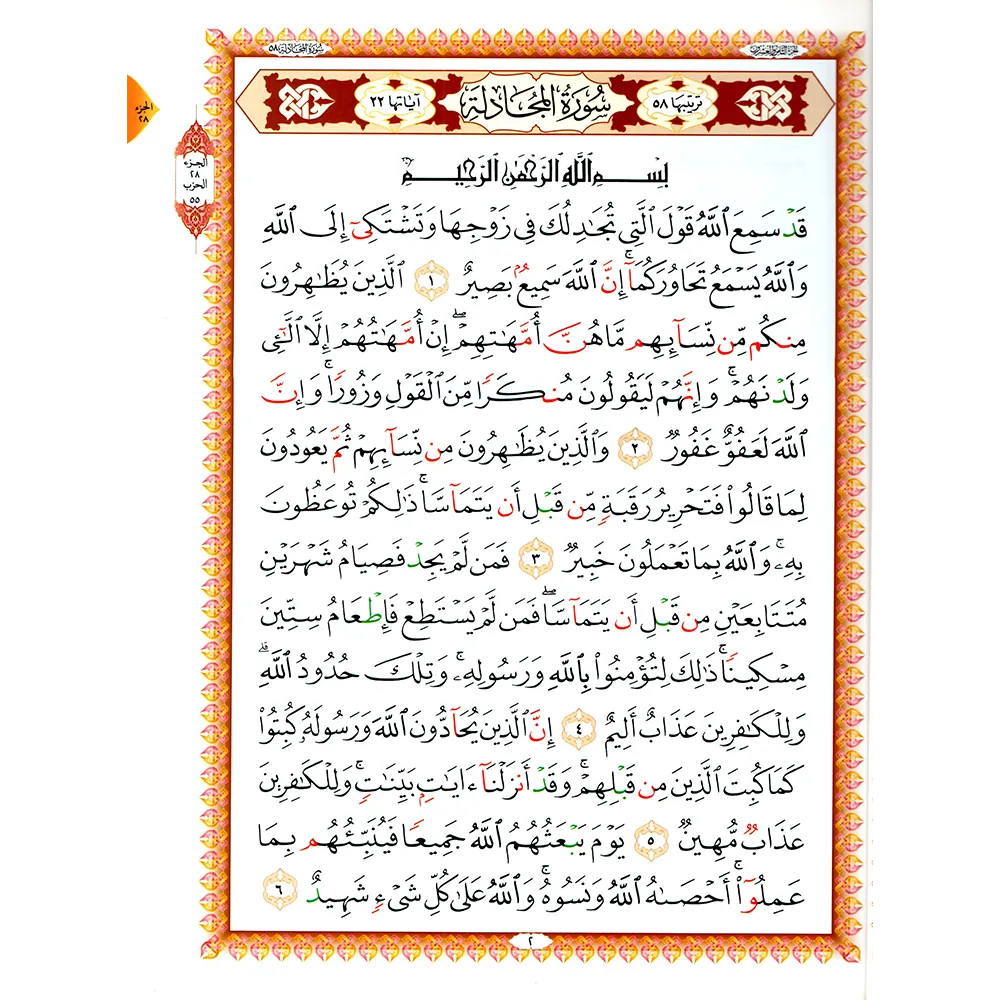 سُورَةُ المُجَادلَة ٥٨
الجزء الثامن والعشرون
ترتيبها ٥٨
سُورَةُ المُجَادلَة
آياتها ٢٢
الجزء
٢٨
الجزء
٢٨
الحزب
٥٥
بِسْمِ ٱللَّهِ ٱلرَّحْمَٰنِ ٱلرَّحِيمِ
قَدْ سَمِعَ ٱللَّهُ قَوْلَ ٱلَّتِى تُجَٰدِلُكَ فِى زَوْجِهَا وَتَشْتَكِىٓ إِلَى ٱللَّهِ
وَٱللَّهُ يَسْمَعُ تَحَاوُرَكُمَآ ۚ إِنَّ ٱللَّهَ سَمِيعٌۢ بَصِيرٌ ١ ٱلَّذِينَ يُظَٰهِرُونَ
مِنكُم مِّن نِّسَآئِهِم مَّا هُنَّ أُمَّهَٰتِهِمْ ۖ إِنْ أُمَّهَٰتُهُمْ إِلَّا ٱلَّٰٓـِٔى
وَلَدْنَهُمْ ۚ وَإِنَّهُمْ لَيَقُولُونَ مُنكَرًا مِّنَ ٱلْقَوْلِ وَزُورًا ۚ وَإِنَّ
ٱللَّهَ لَعَفُوٌّ غَفُورٌ ٢ وَٱلَّذِينَ يُظَٰهِرُونَ مِن نِّسَآئِهِمْ ثُمَّ يَعُودُونَ
لِمَا قَالُوا۟ فَتَحْرِيرُ رَقَبَةٍ مِّن قَبْلِ أَن يَتَمَآسَّا ۚ ذَٰلِكُمْ تُوعَظُونَ
بِهِۦ ۚ وَٱللَّهُ بِمَا تَعْمَلُونَ خَبِيرٌ ٣ فَمَن لَّمْ يَجِدْ فَصِيَامُ شَهْرَيْنِ
مُتَتَابِعَيْنِ مِن قَبْلِ أَن يَتَمَآسَّا ۖ فَمَن لَّمْ يَسْتَطِعْ فَإِطْعَامُ سِتِّينَ
مِسْكِينًا ۚ ذَٰلِكَ لِتُؤْمِنُوا۟ بِٱللَّهِ وَرَسُولِهِۦ ۚ وَتِلْكَ حُدُودُ ٱللَّهِ ۗ
وَلِلْكَٰفِرِينَ عَذَابٌ أَلِيمٌ ٤ إِنَّ ٱلَّذِينَ يُحَآدُّونَ ٱللَّهَ وَرَسُولَهُۥ كُبِتُوا۟
كَمَا كُبِتَ ٱلَّذِينَ مِن قَبْلِهِمْ ۚ وَقَدْ أَنزَلْنَآ ءَايَٰتٍۭ بَيِّنَٰتٍ ۚ وَلِلْكَٰفِرِينَ
عَذَابٌ مُّهِينٌ ٥ يَوْمَ يَبْعَثُهُمُ ٱللَّهُ جَمِيعًا فَيُنَبِّئُهُم بِمَا
عَمِلُوٓا۟ ۚ أَحْصَىٰهُ ٱللَّهُ وَنَسُوهُ ۚ وَٱللَّهُ عَلَىٰ كُلِّ شَىْءٍ شَهِيدٌ ٦
٢